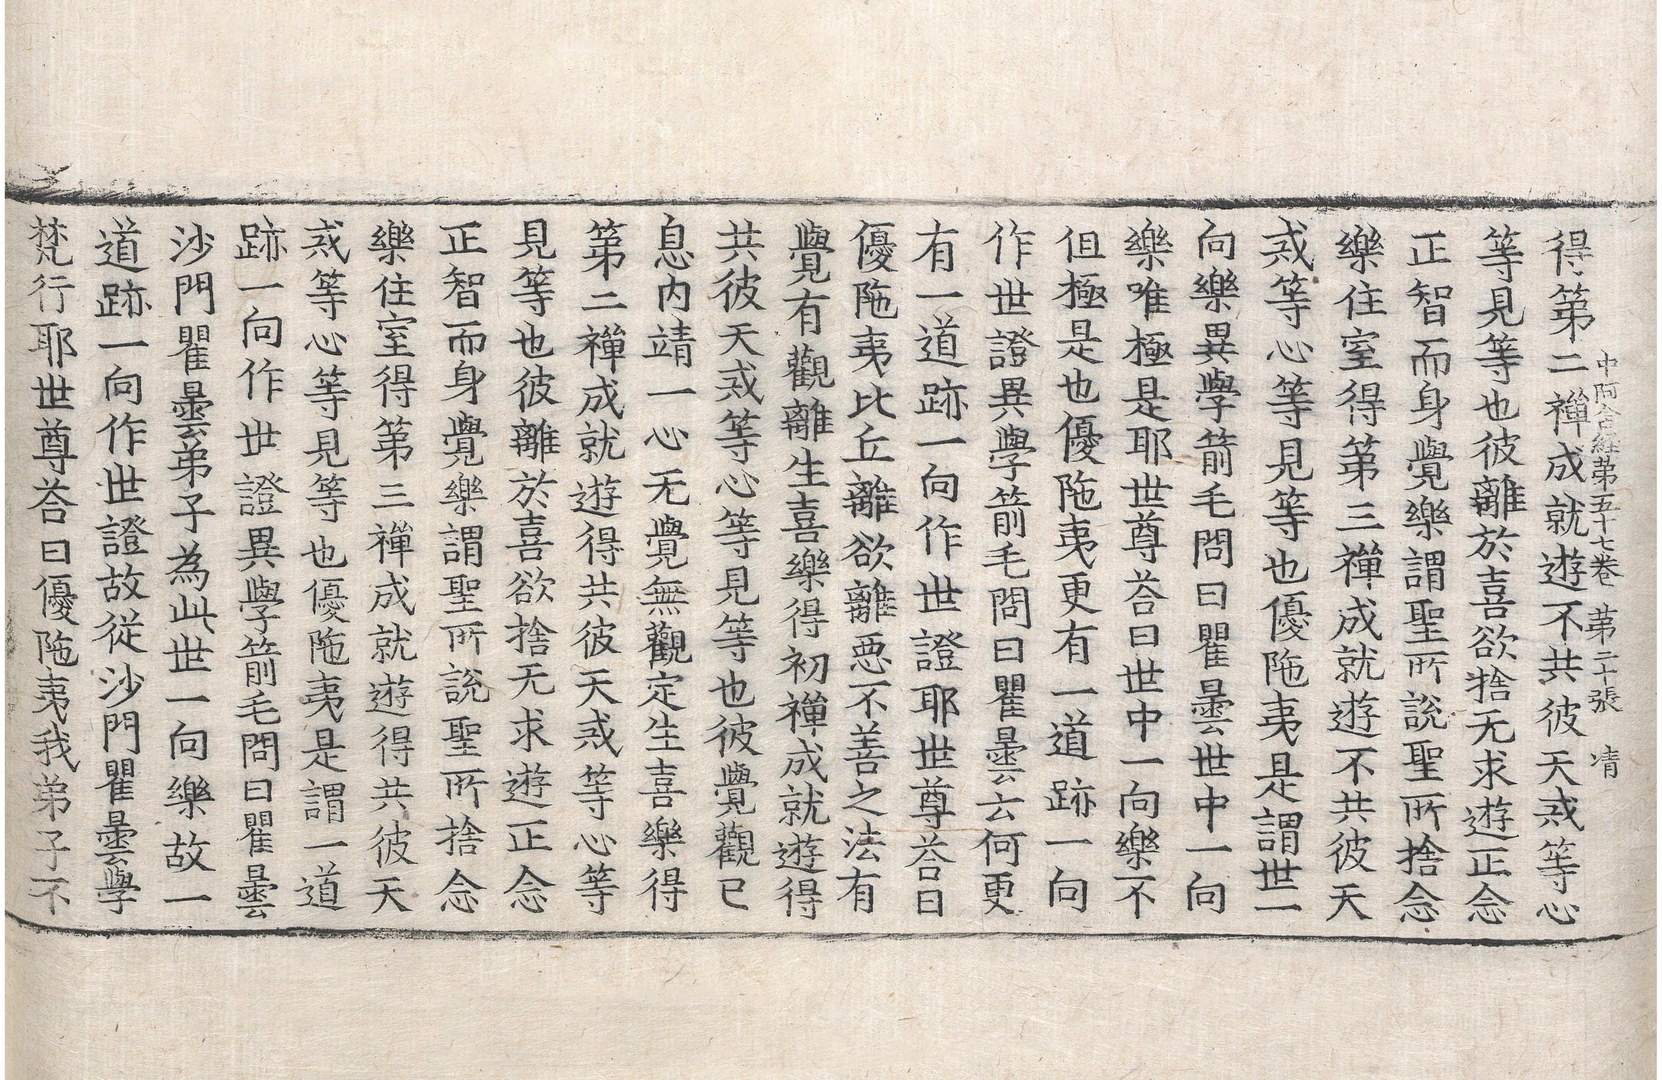 得第二禪成就遊不共彼天或等心
中阿含經第五十七卷 第二十張 凊
等見等也彼離於喜欲捨无求遊正念
正智而身覺樂謂聖所說聖所捨念
樂住室得第三禪成就遊不共彼天
或等心等見等也優陁夷是謂世一
向樂異學箭毛問曰瞿曇世中一向
樂唯極是耶世尊荅曰世中一向樂不
但極是也優陁夷更有一道跡一向
作世證異學箭毛問曰瞿曇云何更
有一道跡一向作世證耶世尊荅曰
優陁夷比丘離欲離惡不善之法有
覺有觀離生喜樂得初禪成就遊得
共彼天或等心等見等也彼覺觀已
息內靖一心无覺無觀定生喜樂得
第二禪成就遊得共彼天或等心等
見等也彼離於喜欲捨无求遊正念
正智而身覺樂謂聖所說聖所捨念
樂住室得第三禪成就遊得共彼天
或等心等見等也優陁夷是謂一道
跡一向作世證異學箭毛問曰瞿曇
沙門瞿曇弟子為此世一向樂故一
道跡一向作世證故從沙門瞿曇學
梵行耶世尊荅曰優陁夷我弟子不